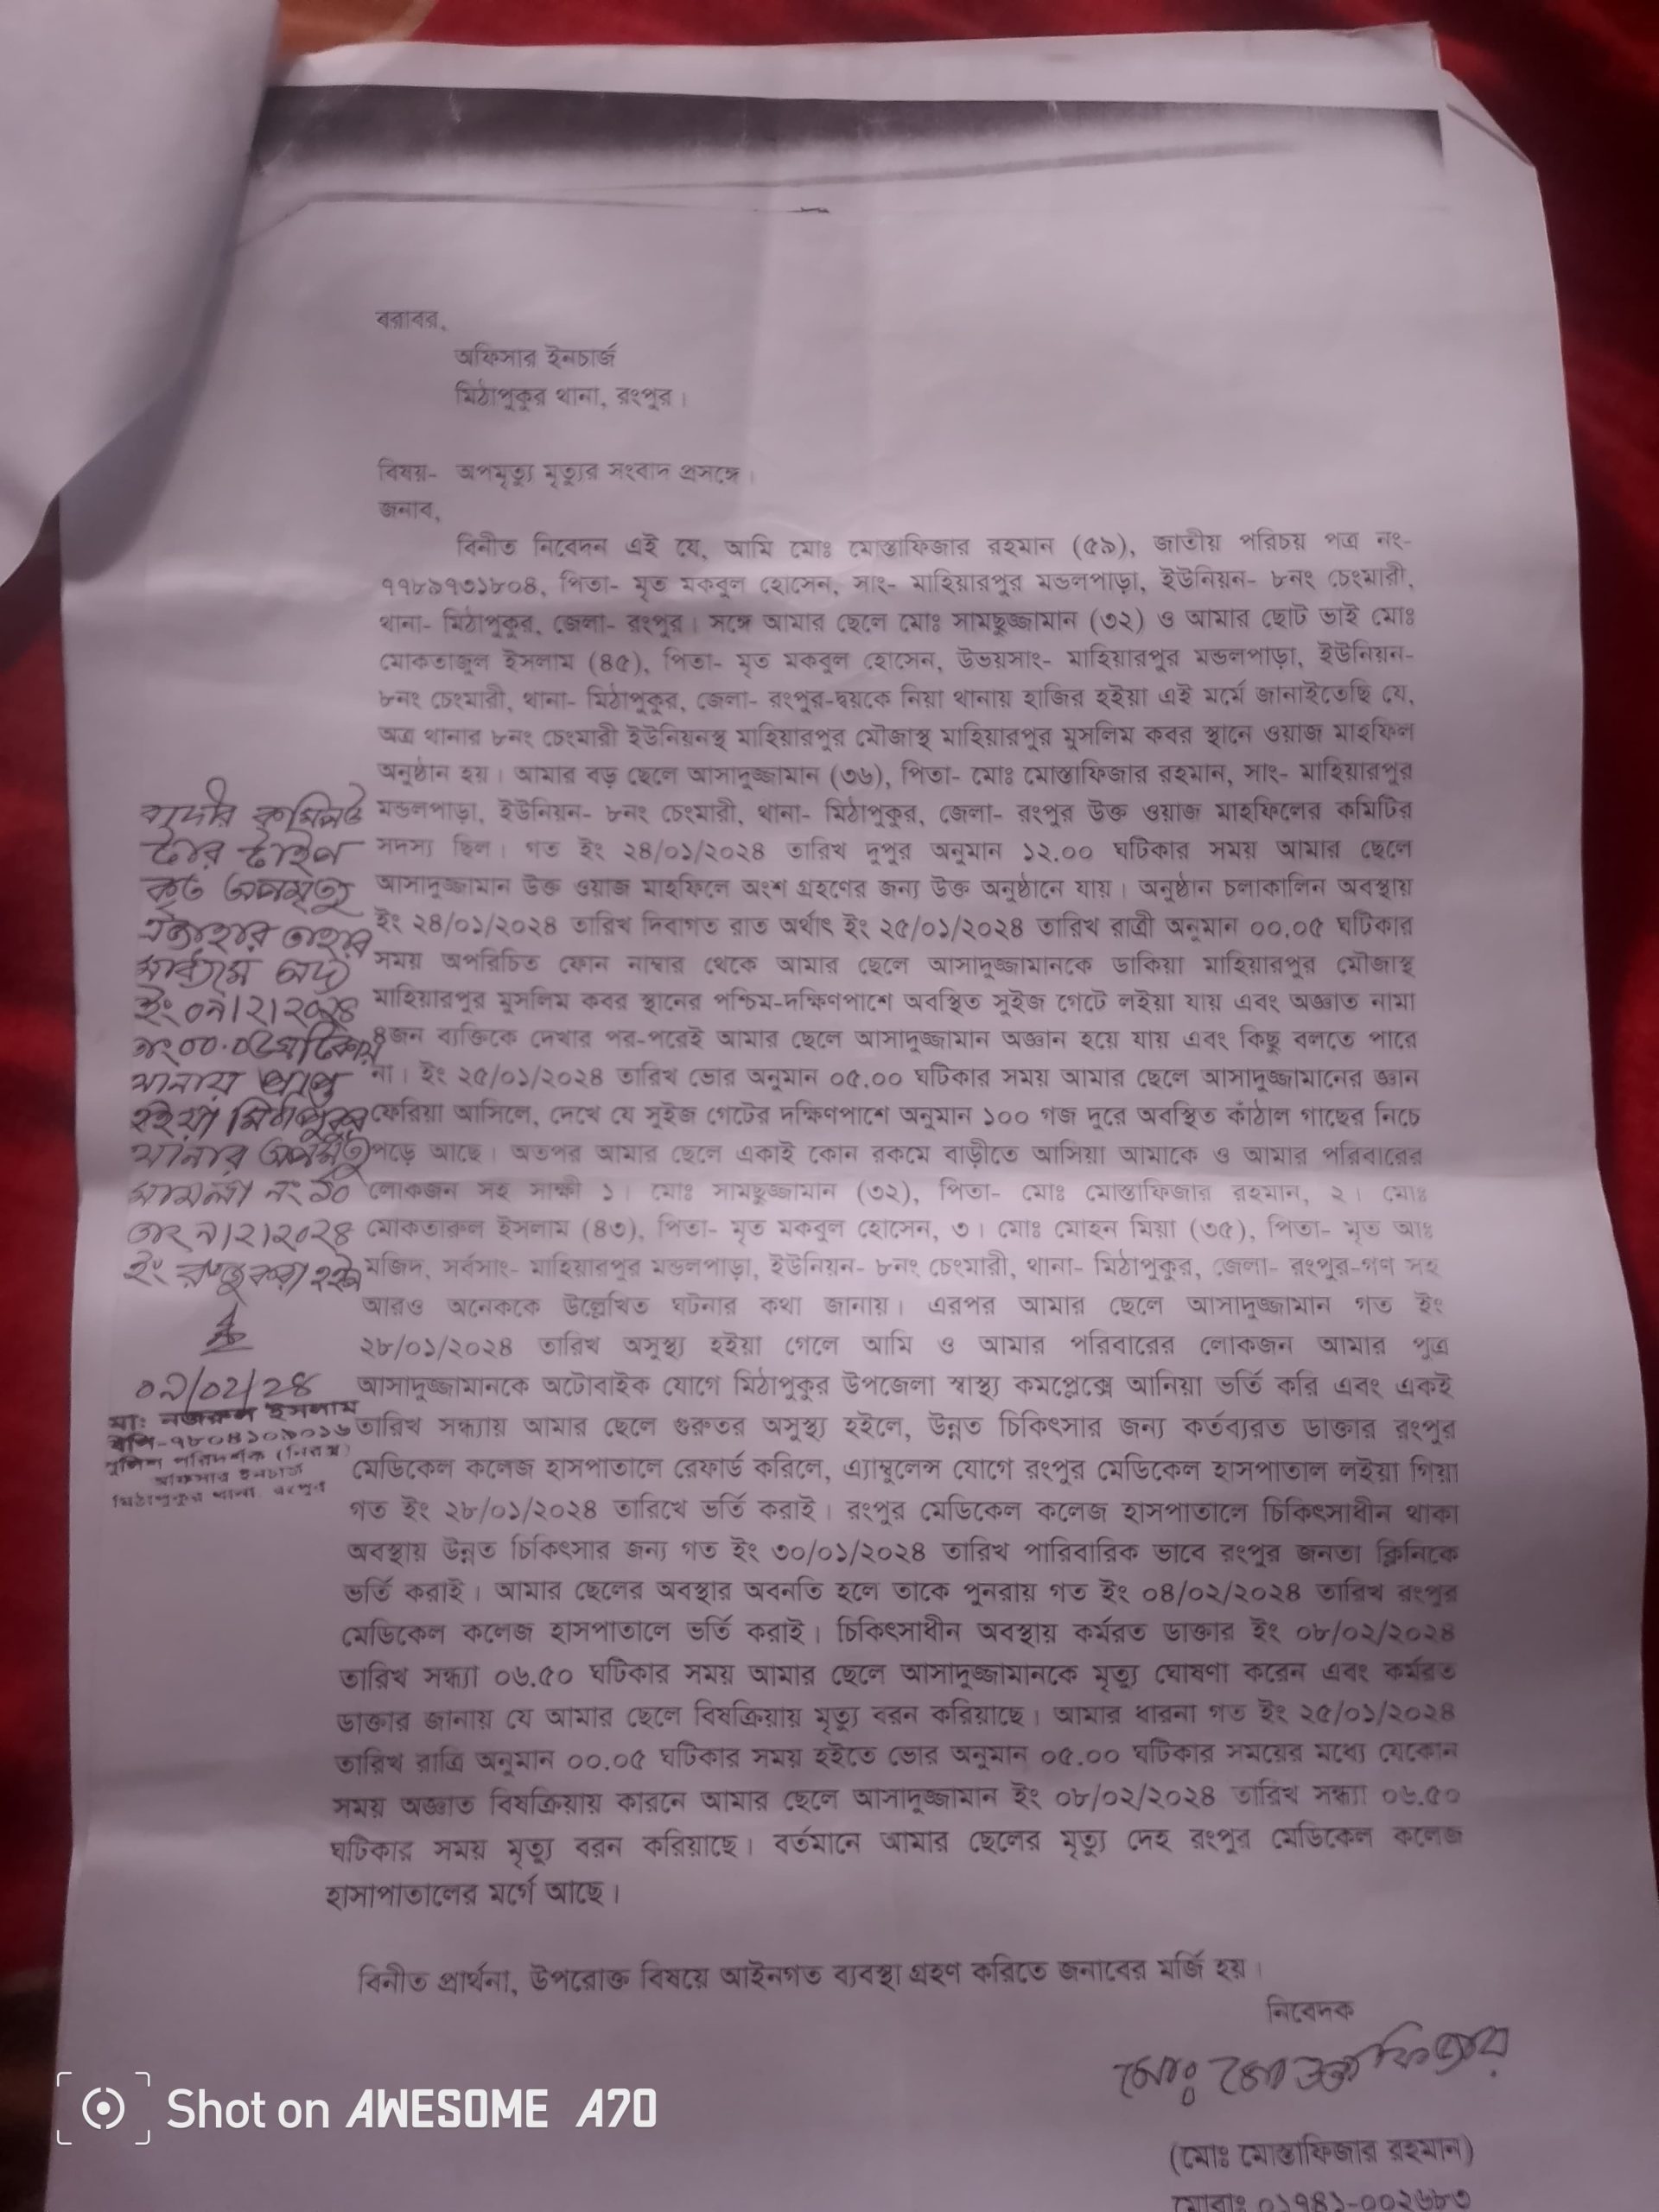 বরাবর,
অফিসার ইনচার্জ
মিঠাপুকুর থানা, রংপুর।
বিষয়- অপমৃত্যু মৃত্যুর সংবাদ প্রসঙ্গে।
জনাব,
বিনীত নিবেদন এই যে, আমি মোঃ মোস্তাফিজার রহমান (৫৯), জাতীয় পরিচয় পত্র নং-
৭৭৮৯৭৩১৮০৪, পিতা- মৃত মকবুল হোসেন, সাং- মাহিয়ারপুর মন্ডলপাড়া, ইউনিয়ন- ৮নং চেংমারী,
থানা- মিঠাপুকুর, জেলা- রংপুর। সঙ্গে আমার ছেলে মোঃ সামছুজ্জামান (৩২) ও আমার ছোট ভাই মোঃ
মোকতাজুল ইসলাম (৪৫), পিতা- মৃত মকবুল হোসেন, উভয়সাং- মাহিয়ারপুর মন্ডলপাড়া, ইউনিয়ন-
৮নং চেংমারী, থানা- মিঠাপুকুর, জেলা- রংপুর-দ্বয়কে নিয়া থানায় হাজির হইয়া এই মর্মে জানাইতেছি যে,
অত্র থানার ৮নং চেংমারী ইউনিয়নস্থ মাহিয়ারপুর মৌজাস্থ মাহিয়ারপুর মুসলিম কবর স্থানে ওয়াজ মাহফিল
অনুষ্ঠান হয়। আমার বড় ছেলে আসাদুজ্জামান (৩৬), পিতা- মোঃ মোস্তাফিজার রহমান, সাং- মাহিয়ারপুর
মন্ডলপাড়া, ইউনিয়ন- ৮নং চেংমারী, থানা- মিঠাপুকুর, জেলা- রংপুর উক্ত ওয়াজ মাহফিলের কমিটির
সদস্য ছিল। গত ইং ২৪/০১/২০২৪ তারিখ দুপুর অনুমান ১২.০০ ঘটিকার সময় আমার ছেলে
আসাদুজ্জামান উক্ত ওয়াজ মাহফিলে অংশ গ্রহণের জন্য উক্ত অনুষ্ঠানে যায়। অনুষ্ঠান চলাকালিন অবস্থায়
ইং ২৪/০১/২০২৪ তারিখ দিবাগত রাত অর্থাৎ ইং ২৫/০১/২০২৪ তারিখ রাত্রী অনুমান ০০.০৫ ঘটিকার
সময় অপরিচিত ফোন নাম্বার থেকে আমার ছেলে আসাদুজ্জামানকে ডাকিয়া মাহিয়ারপুর মৌজাস্থ
মাহিয়ারপুর মুসলিম কবর স্থানের পশ্চিম-দক্ষিণপাশে অবস্থিত সুইজ গেটে লইয়া যায় এবং অজ্ঞাত নামা
৪জন ব্যক্তিকে দেখার পর-পরেই আমার ছেলে আসাদুজ্জামান অজ্ঞান হয়ে যায় এবং কিছু বলতে পারে
না। ইং ২৫/০১/২০২৪ তারিখ ভোর অনুমান ০৫.০০ ঘটিকার সময় আমার ছেলে আসাদুজ্জামানের জ্ঞান
ফেরিয়া আসিলে, দেখে যে সুইজ গেটের দক্ষিণপাশে অনুমান ১০০ গজ দুরে অবস্থিত কাঁঠাল গাছের নিচে
পড়ে আছে। অতপর আমার ছেলে একাই কোন রকমে বাড়ীতে আসিয়া আমাকে ও আমার পরিবারের
লোকজন সহ সাক্ষী ১। মোঃ সামছুজ্জামান (৩২), পিতা- মোঃ মোস্তাফিজার রহমান, ২। মোঃ
মোকতারুল ইসলাম (৪৩), পিতা- মৃত মকবুল হোসেন, ৩। মোঃ মোহন মিয়া (৩৫), পিতা- মৃত আঃ
মজিদ, সর্বসাং- মাহিয়ারপুর মন্ডলপাড়া, ইউনিয়ন- ৮নং চেংমারী, থানা- মিঠাপুকুর, জেলা- রংপুর-গণ সহ
আরও অনেককে উল্লেখিত ঘটনার কথা জানায়। এরপর আমার ছেলে আসাদুজ্জামান গত ইং
২৮/০১/২০২৪ তারিখ অসুস্থ্য হইয়া গেলে আমি ও আমার পরিবারের লোকজন আমার পুত্র
আসাদুজ্জামানকে অটোবাইক যোগে মিঠাপুকুর উপজেলা স্বাস্থ্য কমপ্লেক্সে আনিয়া ভর্তি করি এবং একই
তারিখ সন্ধ্যায় আমার ছেলে গুরুতর অসুস্থ্য হইলে, উন্নত চিকিৎসার জন্য কর্তব্যরত ডাক্তার রংপুর
মেডিকেল কলেজ হাসপাতালে রেফার্ড করিলে, এ্যাম্বুলেন্স যোগে রংপুর মেডিকেল হাসপাতাল লইয়া গিয়া
গত ইং ২৮/০১/২০২৪ তারিখে ভর্তি করাই। রংপুর মেডিকেল কলেজ হাসপাতালে চিকিৎসাধীন থাকা
অবস্থায় উন্নত চিকিৎসার জন্য গত ইং ৩০/০১/২০২৪ তারিখ পারিবারিক ভাবে রংপুর জনতা ক্লিনিকে
ভর্তি করাই। আমার ছেলের অবস্থার অবনতি হলে তাকে পুনরায় গত ইং ০৪/০২/২০২৪ তারিখ রংপুর
মেডিকেল কলেজ হাসপাতালে ভর্তি করাই। চিকিৎসাধীন অবস্থায় কর্মরত ডাক্তার ইং ০৮/০২/২০২৪
তারিখ সন্ধ্যা ০৬.৫০ ঘটিকার সময় আমার ছেলে আসাদুজ্জামানকে মৃত্যু ঘোষণা করেন এবং কর্মরত
ডাক্তার জানায় যে আমার ছেলে বিষক্রিয়ায় মৃত্যু বরন করিয়াছে। আমার ধারনা গত ইং ২৫/০১/২০২৪
তারিখ রাত্রি অনুমান ০০.০৫ ঘটিকার সময় হইতে ভোর অনুমান ০৫.০০ ঘটিকার সময়ের মধ্যে যেকোন
সময় অজ্ঞাত বিষক্রিয়ায় কারনে আমার ছেলে আসাদুজ্জামান ইং ০৮/০২/২০২৪ তারিখ সন্ধ্যা ০৬.৫০
ঘটিকার সময় মৃত্যু বরন করিয়াছে। বর্তমানে আমার ছেলের মৃত্যু দেহ রংপুর মেডিকেল কলেজ
হাসাপাতালের মর্গে আছে।
বিনীত প্রার্থনা, উপরোক্ত বিষয়ে আইনগত ব্যবস্থা গ্রহণ করিতে জনাবের মর্জি হয়।
নিবেদক
মোঃ মোস্তাফিজার
(মোঃ মোস্তাফিজার রহমান)
মোবাঃ ০১৭৪১-০০২৬৮৩
বাদীর কম্পিউ
টার টাইপ
কৃত অপমৃত্যু
এজাহার তাহার
মাধ্যমে অদ্য
ইং ০৯/২/২০২৪
থানায় প্রাপ্ত
হইয়া মিঠাপুকুর
থানার অপমৃত্যু
মামলা নং ১০
তাং ৯/২/২০২৪
ইং রুজু করা হইল
০৯/০২/২৪
মোঃ নজরুল ইসলাম
বিপি-৭৮০৪১০৯০১৬
পুলিশ পরিদর্শক (নিরস্ত্র)
অফিসার ইনচার্জ
মিঠাপুকুর থানা, রংপুর
Shot on AWESOME A70